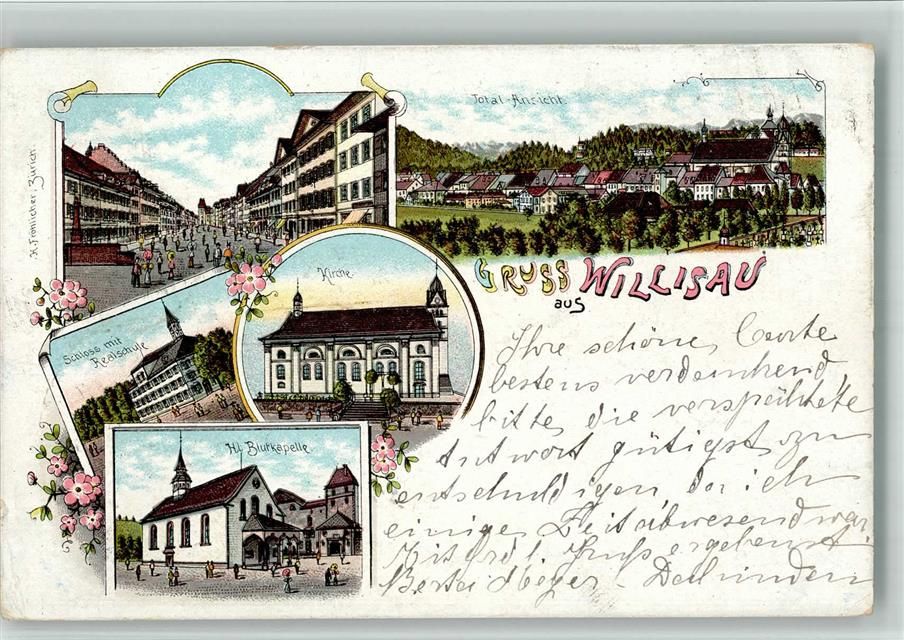 H. Frömlicher, Zürich.
Total-Ansicht.
GRUSS aus WILLISAU
Kirche.
Schloss mit
Realschule
Hl. Blutkapelle.
Ihre schöne Carte
bestens verdankend,
bitte die verspähtete
Antwort gütigst zu
entschuldigen, da ich
einige Zeit abwesend war.
Mit frdl. Gruß ergebenst